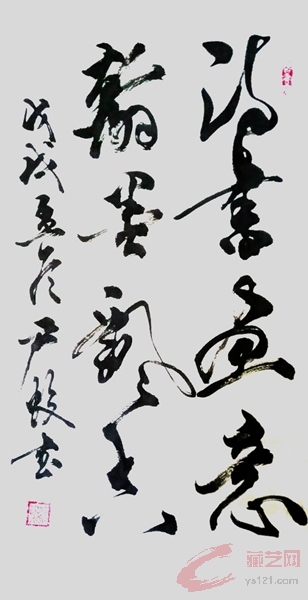 诗书画意
翰墨飘香
戊戌
藏艺网
ys121.com